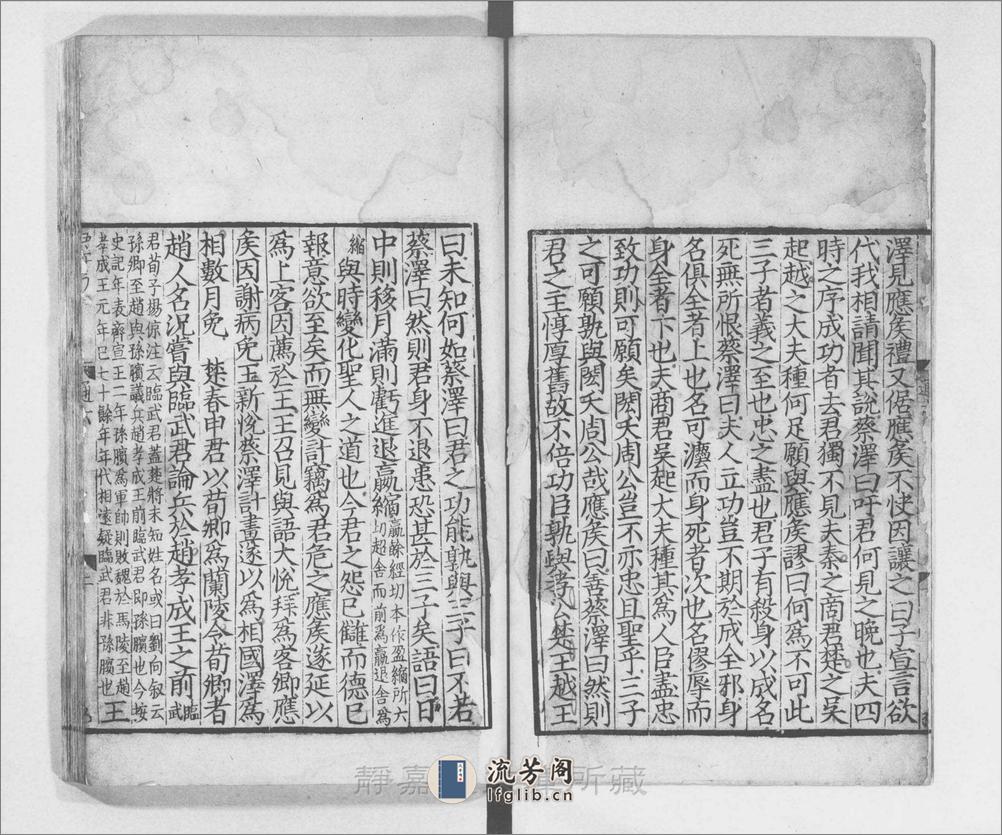 澤見應矦禮又倨應矦不快因讓之曰子宣言欲
代我相請聞其説蔡澤曰吁君何見之晚也夫四
時之序成功者去君獨不見夫秦之商君楚之吴
起越之大夫種何足願與應矦謬曰何爲不可此
三子者義之至也忠之盡也君子有殺身以成名
死無所恨蔡澤曰夫人立功豈不期於成全邪身
名俱全者上也名可灋而身死者次也名僇辱而
身全者下也夫商君吴起大夫種其爲人臣盡忠
致功則可願矣閎夭周公豈不亦忠且聖乎三子
之可願孰與閎夭周公哉應矦曰善蔡澤曰然則
君之主惇厚舊故不倍功臣孰與孝公楚王越王
曰未知何如蔡澤曰君之功能孰與三子曰不若
蔡澤曰然則君身不退患恐甚於三子矣語曰日
中則移月滿則虧進退嬴縮嬴餘經切本作盈縮所六切超舍而前爲嬴退舍爲
縮與時變化聖人之道也今君之怨已讎而德已
報意欲至矣而無變計竊爲君危之應矦遂延以
爲上客因薦於王王召見與語大悅拜爲客卿應
矦因謝病免王新悅蔡澤計畫遂以爲相國澤爲
相數月免 楚春申君以荀卿爲蘭陵令荀卿者
趙人名況嘗與臨武君論兵於趙孝成王之前臨武
君荀子楊倞注云臨武君蓋楚將未知姓名或曰劉向叙云孫卿至趙與孫臏議兵趙孝成王前臨武君即孫臏也今按
史記年表齊宣王二年孫臏爲軍帥則敗魏於馬陵至趙孝成王元年已七十餘年年代相遠疑臨武君非孫臏也王
靜嘉
所藏
流芳阁
lfglib.cn